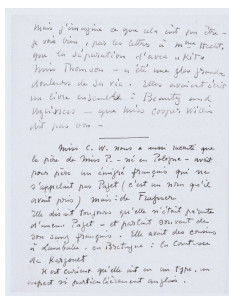 Mais j'imagine ce que cela a dû être -
je vois bien, par les lettres à
que la séparation d'avec "Kit"
Miss Thomson - a été une plus grande
douleur de sa vie. Elles avaient écrit
un livre ensemble : Beauty and
Ugliness - que miss Cooper Willis
dit
Miss C. W. nous a aussi raconté que
le père de Miss P. - né en Pologne - avait
pour père un émigré français qui ne
s'appelait pas Paget (c'est un nom qu'il
avait pris) mais : de
Elle disait toujours qu'elle s'était
d'aucun Paget - et parlait souvent de
son sang français. Elle avait des cousins
à Lamballe, en Bretagne : la Comtesse
de Kergaret
Il est curieux qu'elle ait eu un type, un
aspect si particulièrement anglais.